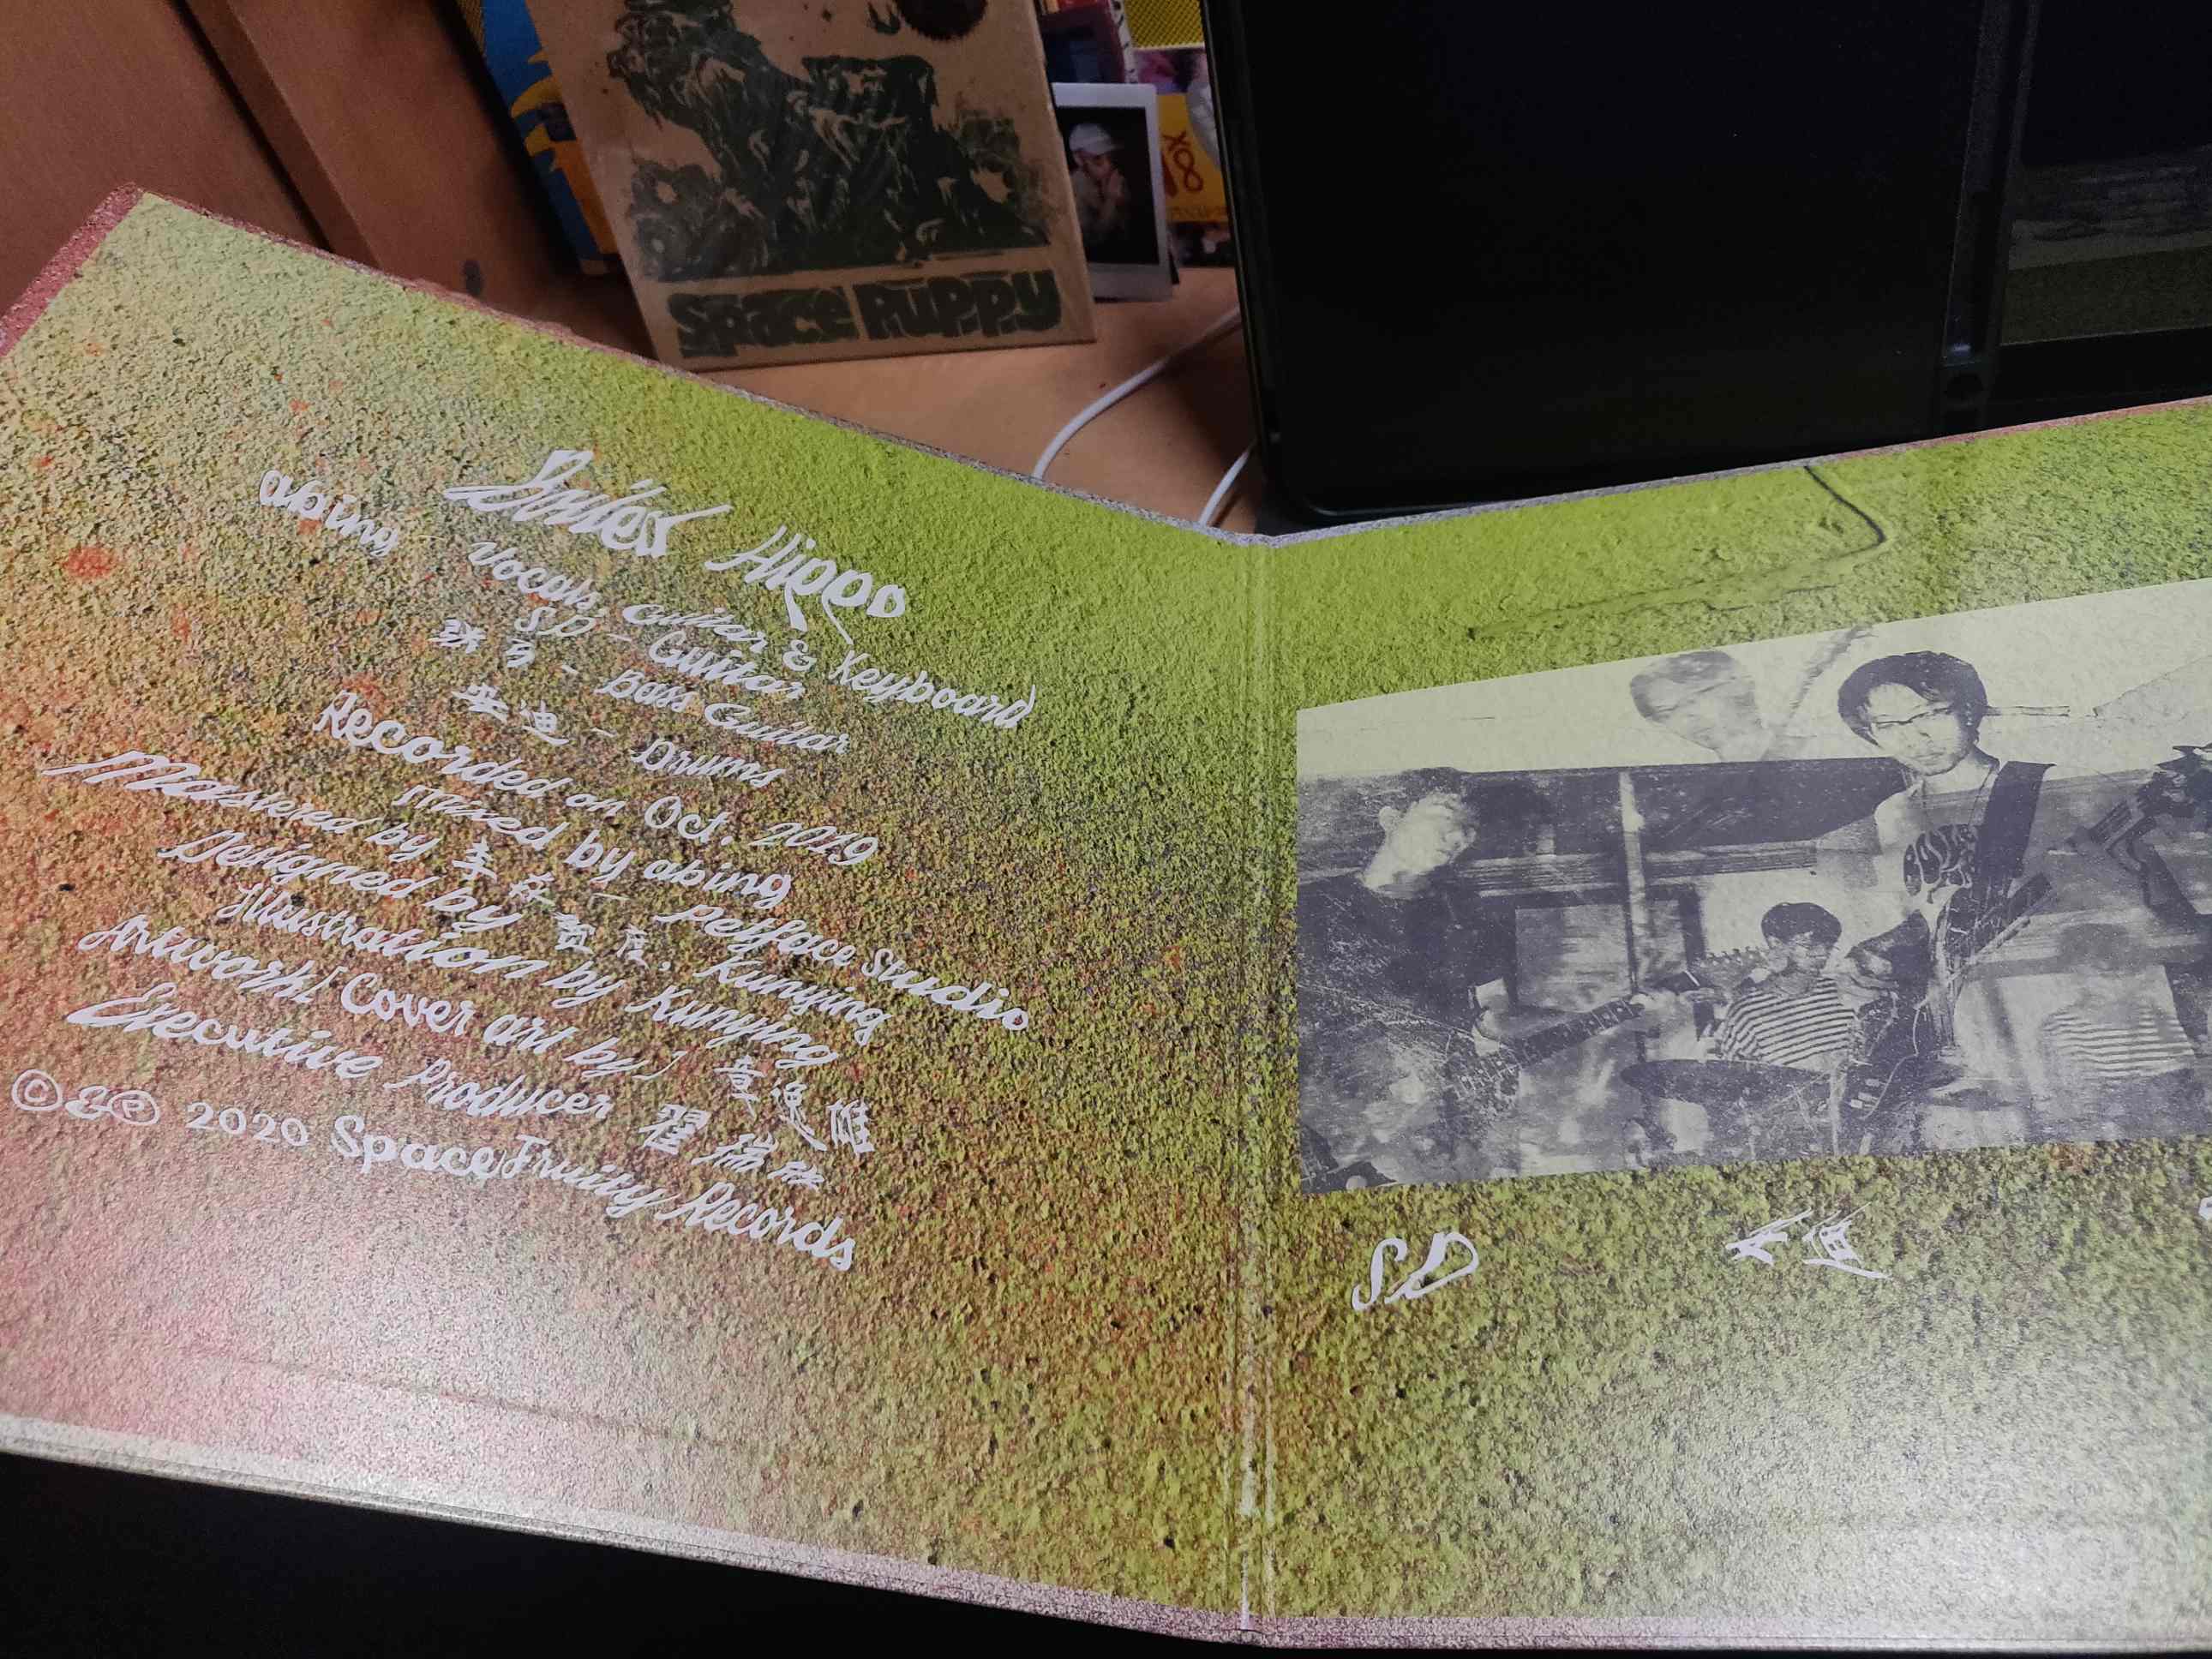 Space Puppy
Sniess Hippo
abing - Vocals, Guitar & Keyboard
SD - Guitar
- Bass Guitar
李迪 - Drums
Recorded on Oct. 2019
Mixed by abing
Mastered by - Petface Studio
Designed by Kunying
Illustration by Kunying
Artwork [Cover art by] 章逸雕
Executive Producer 翟瑞欣
©&℗ 2020 SpaceFruity Records
SD